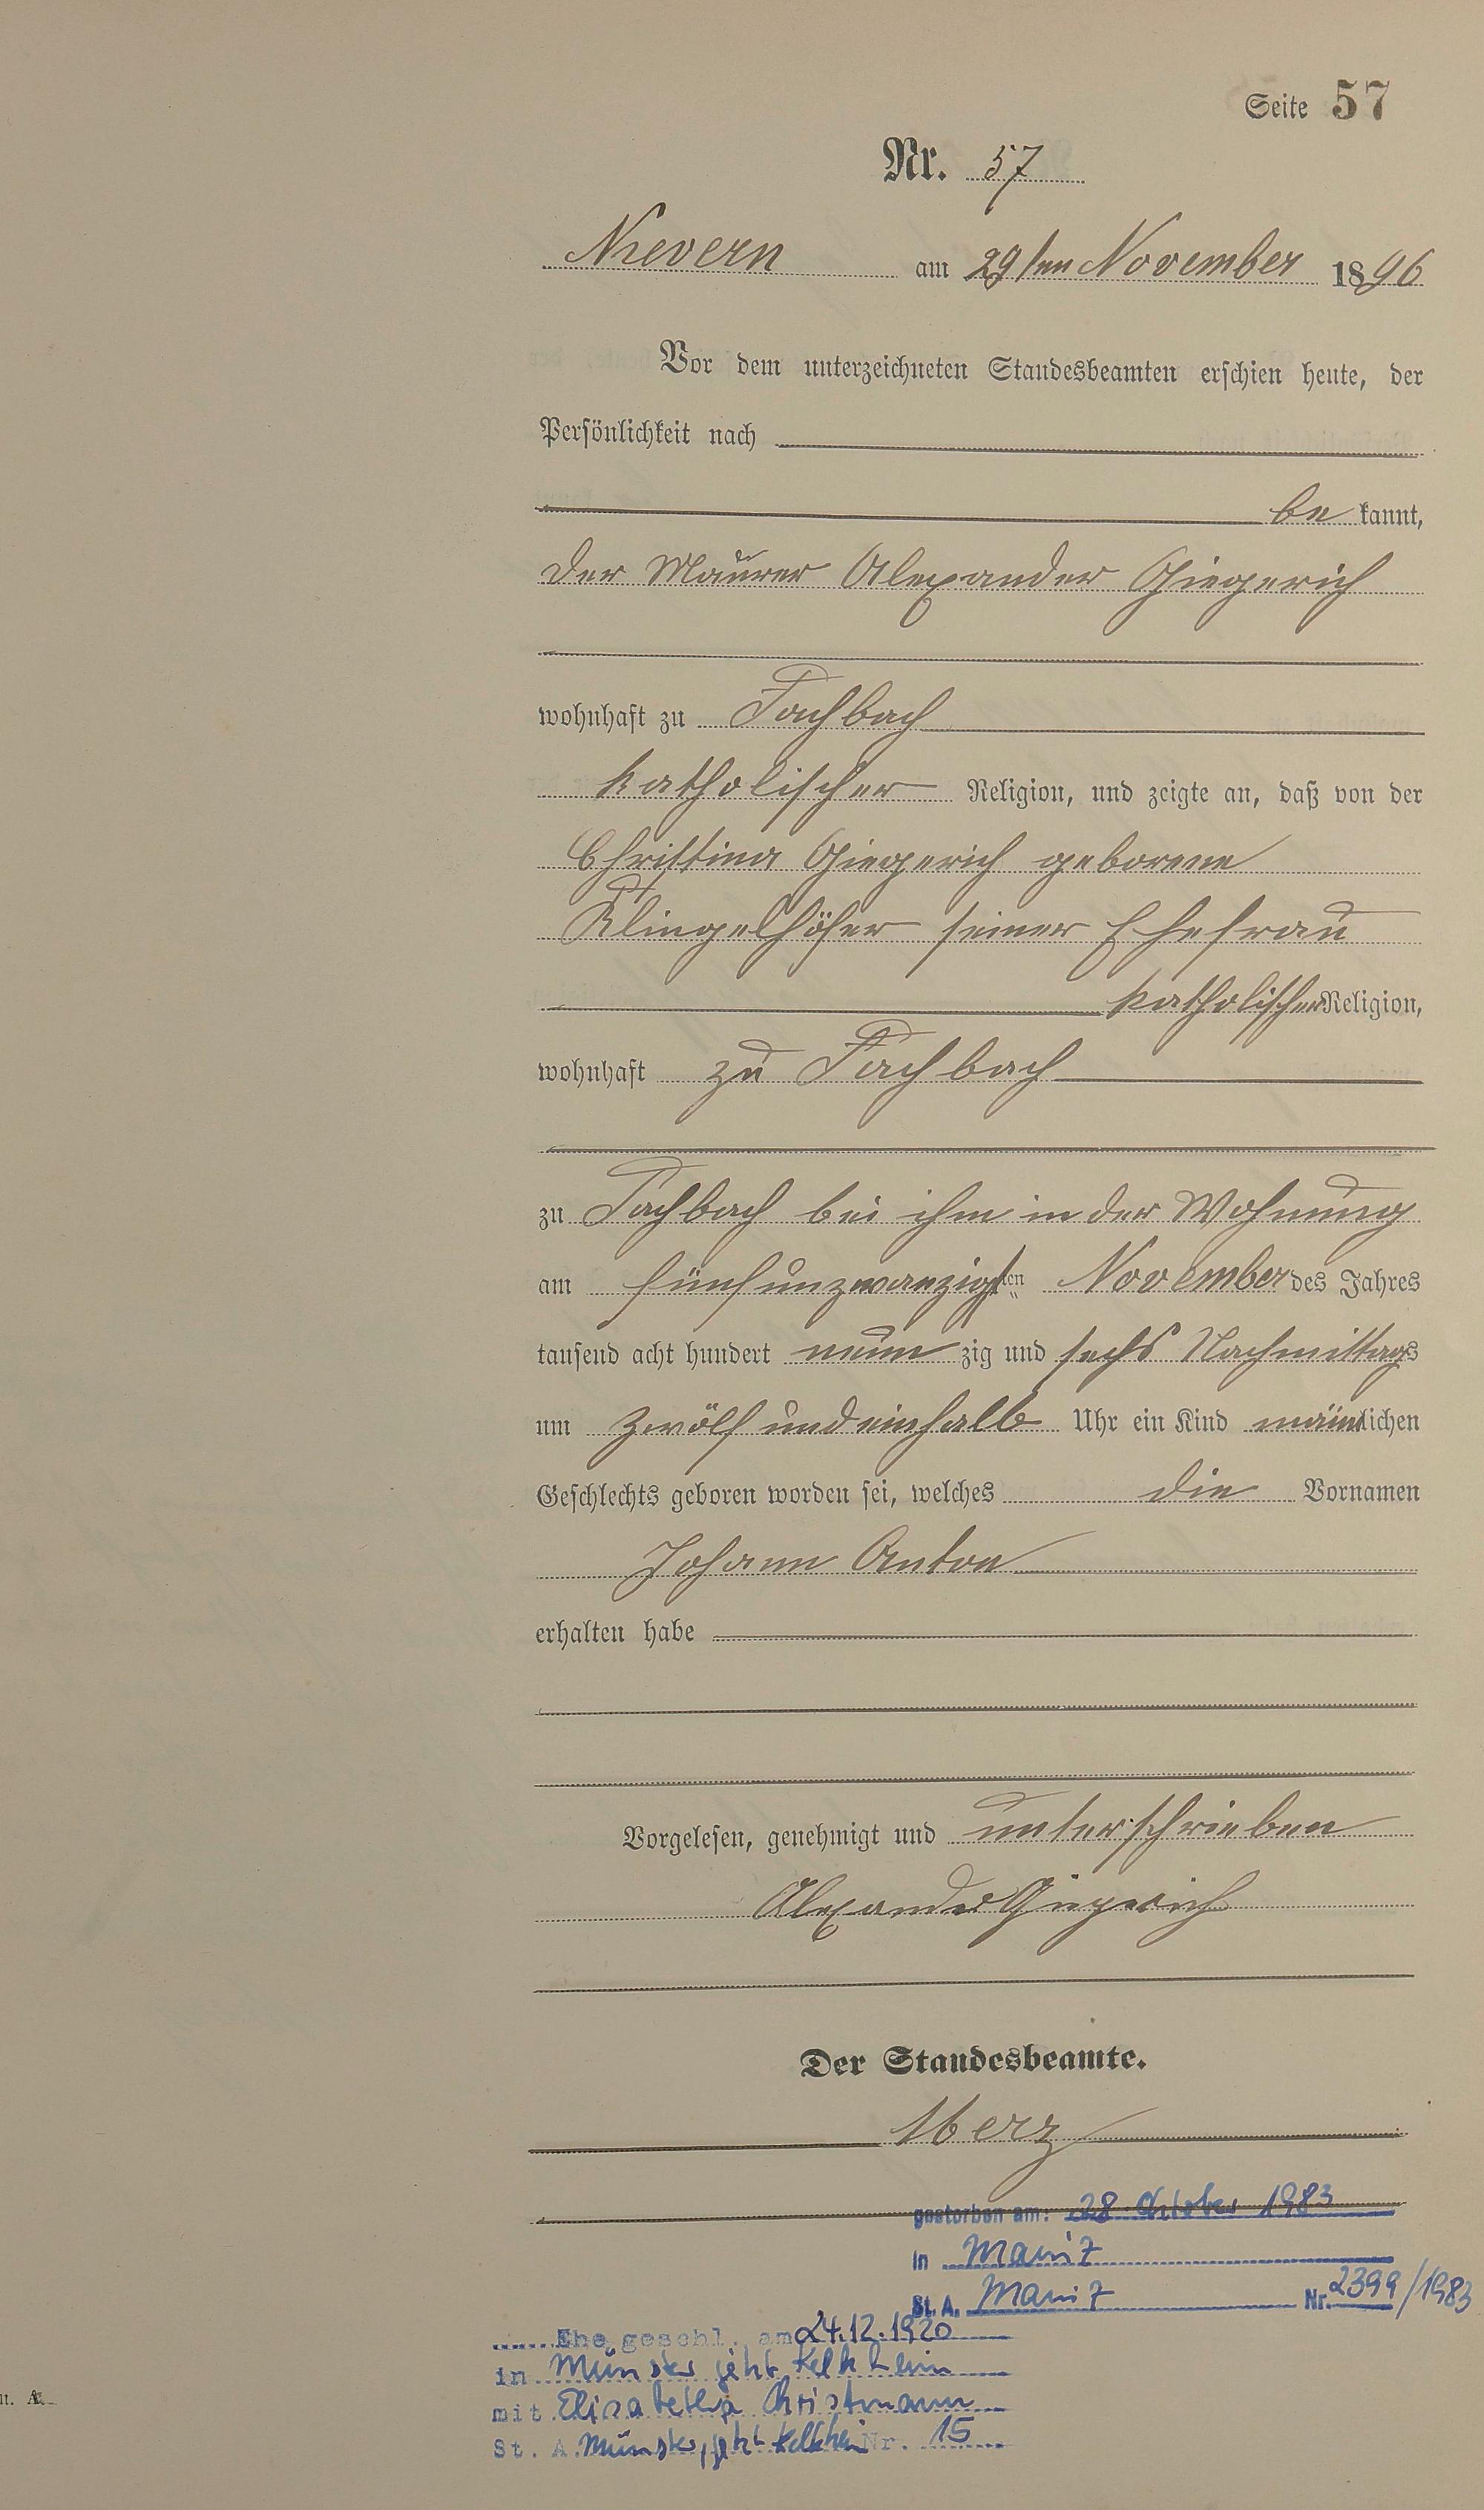 Seite 57
Nr. 57
Nievern am 29ten November 1896
Vor dem unterzeichneten Standesbeamten erschien heute, der
Persönlichkeit nach
be kannt,
der Maurer Alexander Giegerich
wohnhaft zu Fachbach
katholischer Religion, und zeigte an, daß von der
Christina Giegerich geborene
Klingelhöfer seiner Ehefrau
katholischer Religion,
wohnhaft zu Fachbach
zu Fachbach bei ihm in der Wohnung
am fünfunzwanzigsten November des Jahres
tausend acht hundert neun zig und sechs Nachmittags
um zwölf und einhalb Uhr ein Kind männlichen
Geschlechts geboren worden sei, welches die Vornamen
Johann Anton
erhalten habe
Vorgelesen, genehmigt und unterschrieben
Alexander Giegerich
Der Standesbeamte.
Merz
gestorben am: 28. Oktober 1983
in Mainz
St. A. Mainz Nr. 2399/1983
Ehe geschl. am 24.12.1920
in Münster jetzt Kelkheim
mit Elisabetha Christmann
St. A. Münster, jetzt Kelkheim Nr. 15